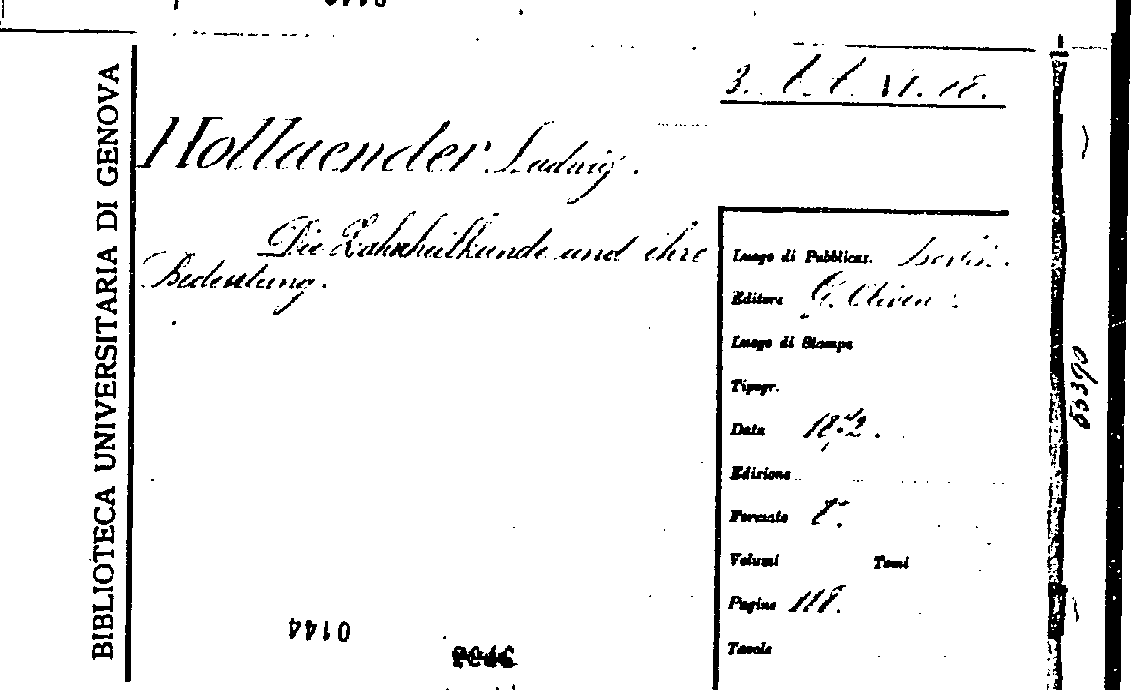 BIBLIOTECA UNIVERSITARIA DI GENOVA
Hollaender Ludwig.
Die Zahnheilkunde und ihre
Bedeutung.
Luogo di Pubblicaz. Berlin.
Editore G. Oliven
Luogo di Stampa
Tipogr.
Data 1872.
Edizione
Formato 8°.
Volumi Tomi
Pagine 118.
Tavole
0144